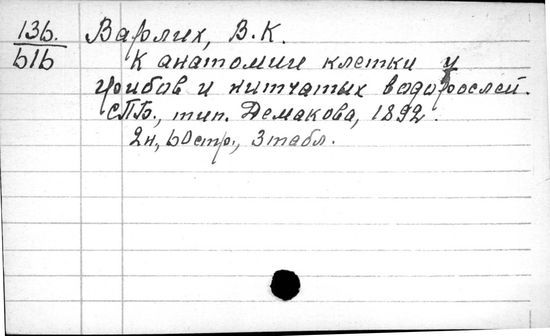 13б. Варлих, В.К.
б1б К анатомии клетки у
грибов и нитчатых водорослей.
СПБ., тип. Демакова, 1892.
2н, 60стр., 3табл.